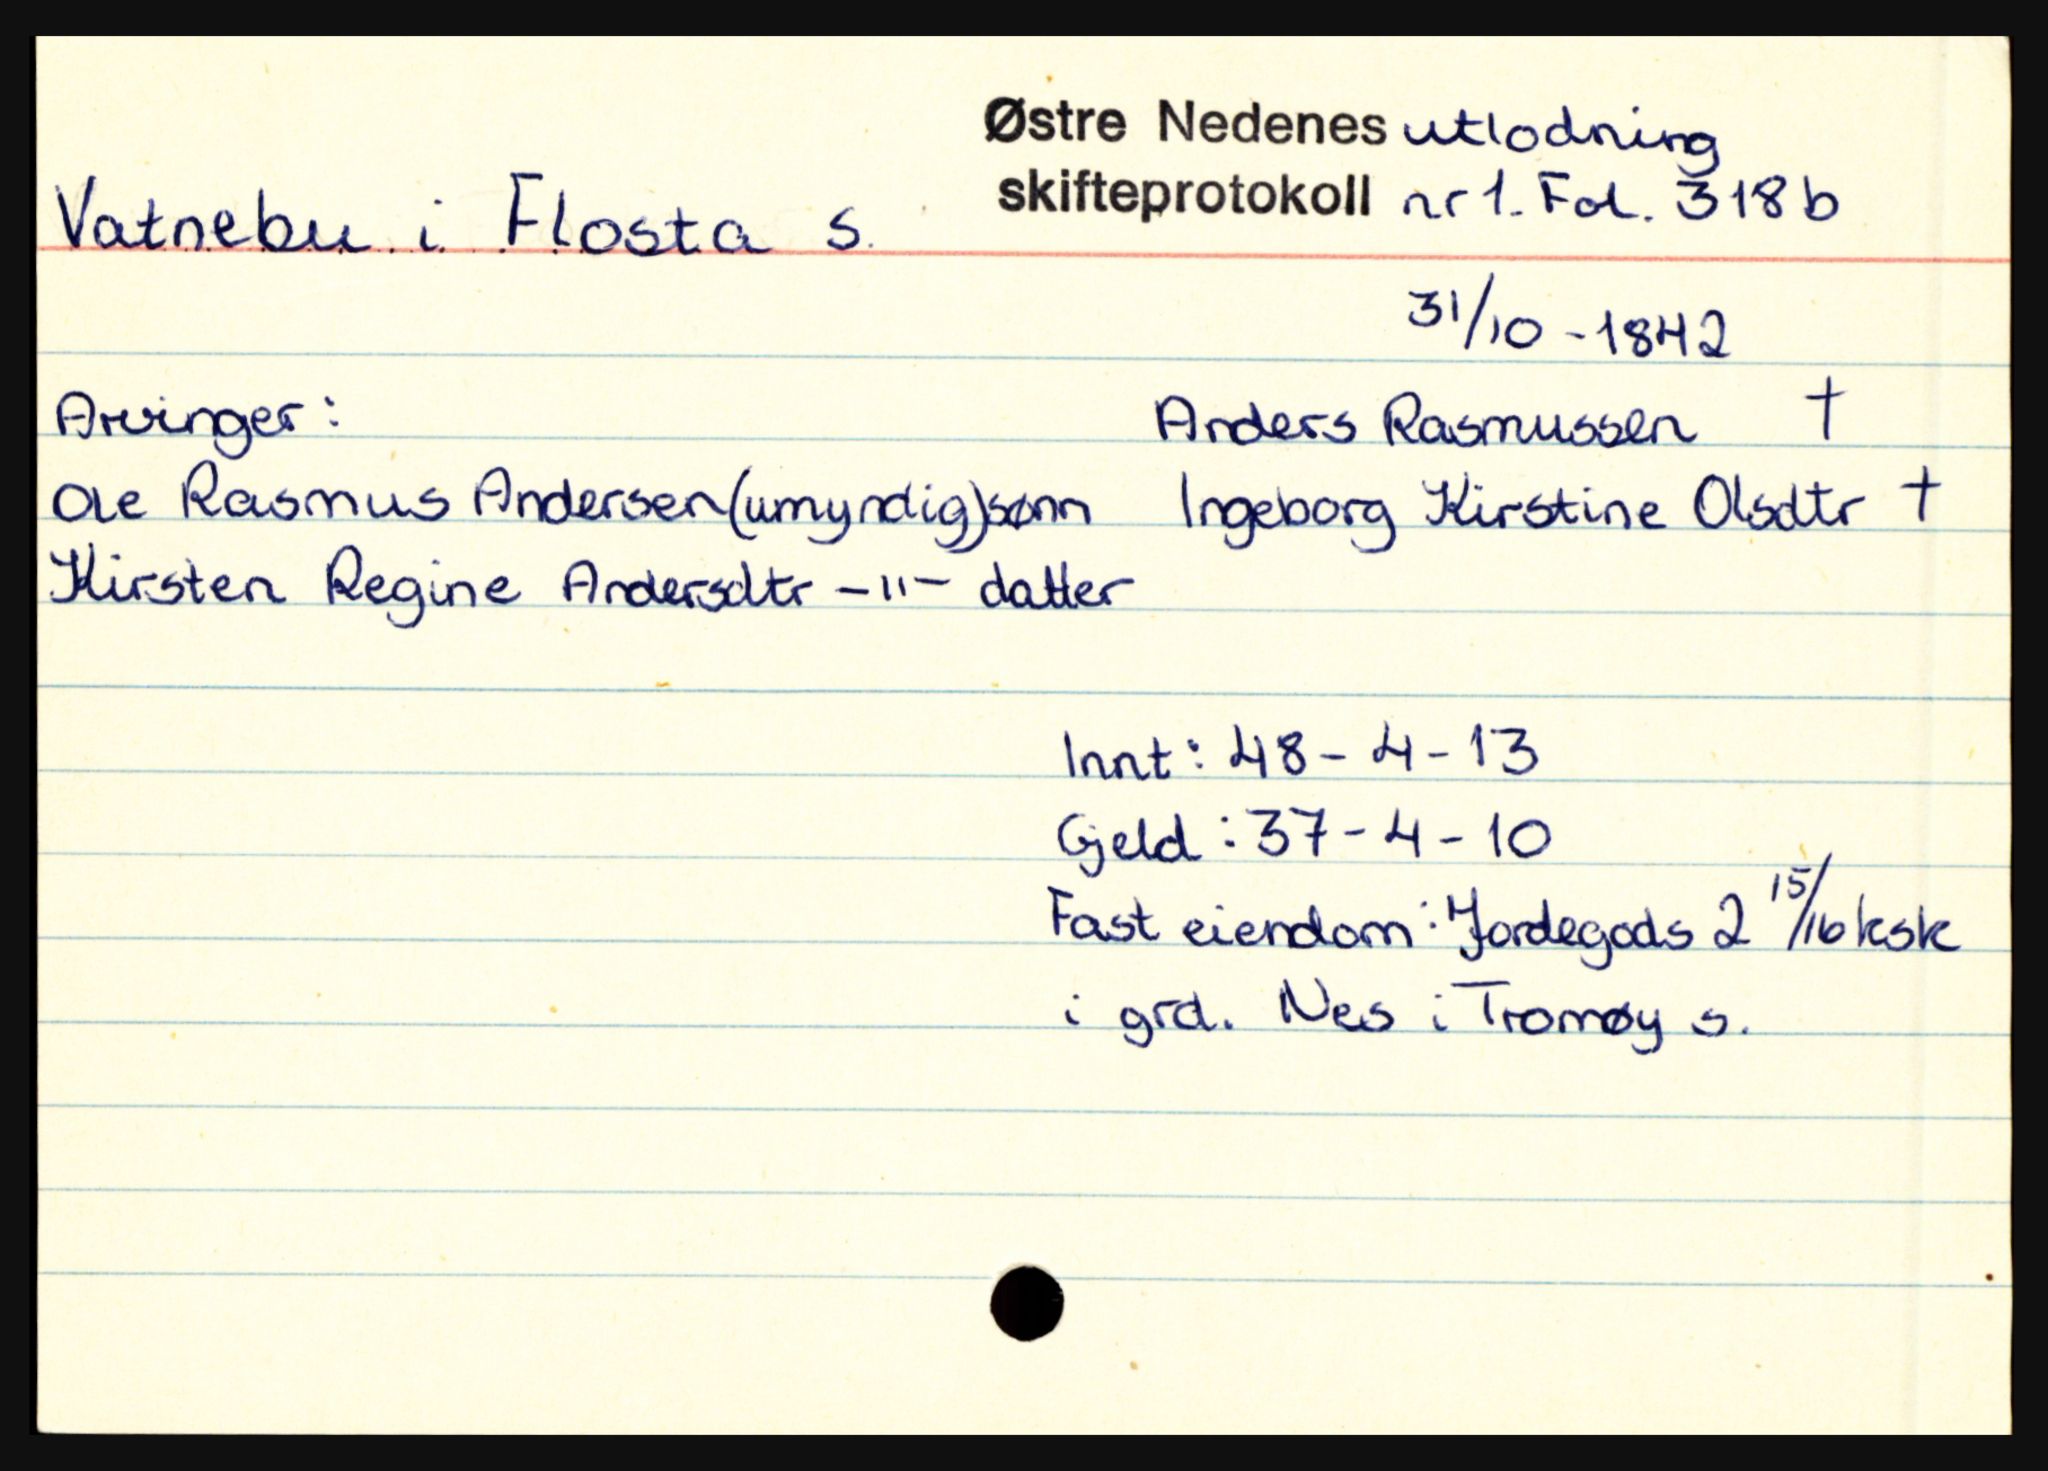 Østre Nedenes utlodning
Vatnebu i Flosta s. skifteprotokoll nr 1. Fol. 318 b
31/10 - 1842
Arvinger: Anders Rasmussen †
Ole Rasmus Andersen (umyndig) sønn Ingeborg Kirstine Olsdtr †
Kirsten Regine Andersdtr - " - datter
Innt: 48 - 4 - 13
Gjeld: 37 - 4 - 10
Fast eiendom: Jordegods 2 15/16 ksk
i grd. Nes i Tromøy s.